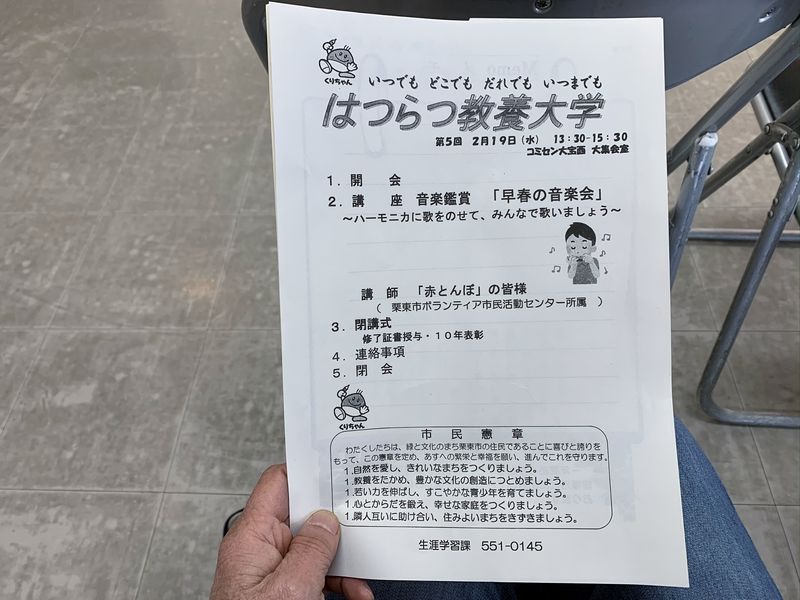 くりちゃん
いつでも どこでも だれでも いつまでも
はつらつ教養大学
第5回 2月19日(水) 13:30-15:30
コミセン大宝西 大集会室
1.開 会
2.講 座 音楽鑑賞 「早春の音楽会」
~ハーモニカに歌をのせて、みんなで歌いましょう~
講 師 「赤とんぼ」の皆様
( 栗東市ボランティア市民活動センター所属 )
3.閉講式
修了証書授与・10年表彰
4.連絡事項
5.閉 会
くりちゃん
市 民 憲 章
わたくしたちは、緑と文化のまち栗東市の住民であることに喜びと誇りを
もって、この憲章を定め、あすへの繁栄と幸福を願い、進んでこれを守ります。
1.自然を愛し、きれいなまちをつくりましょう。
1.教養をたかめ、豊かな文化の創造につとめましょう。
1.若い力を伸ばし、すこやかな青少年を育てましょう。
1.心とからだを鍛え、幸せな家庭をつくりましょう。
1.隣人互いに助け合い、住みよいまちをきずきましょう。
生涯学習課 551-0145